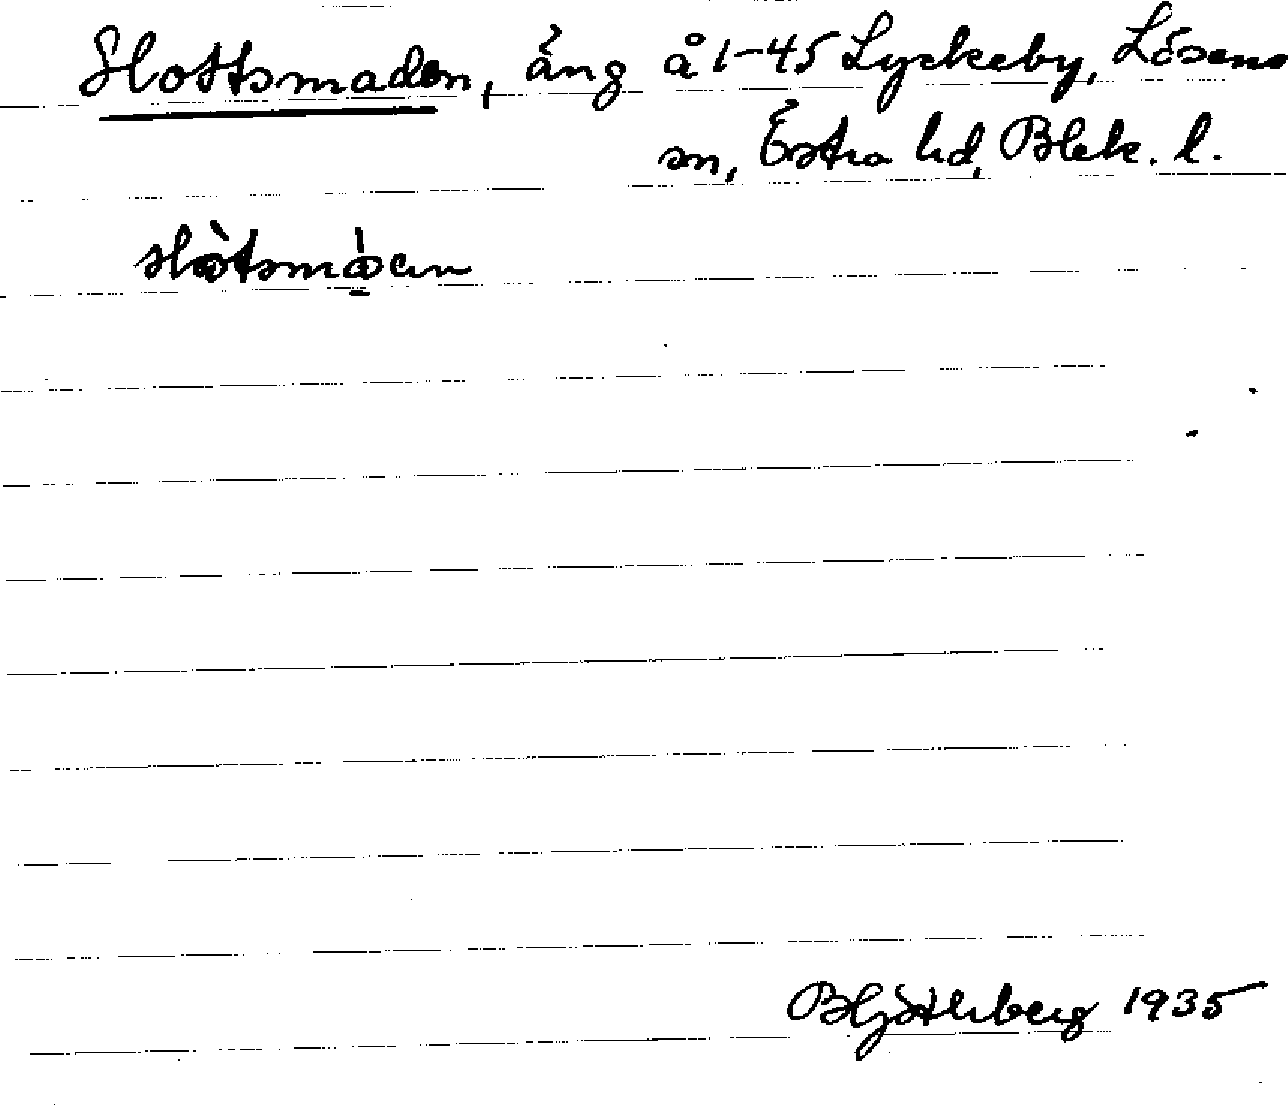 Slottsmaden, äng å 1-45 Lyckeby, Lösens
sn, Östra hd, Blek. l.
slòtsmɑ̀en
B Hjöthberg 1935